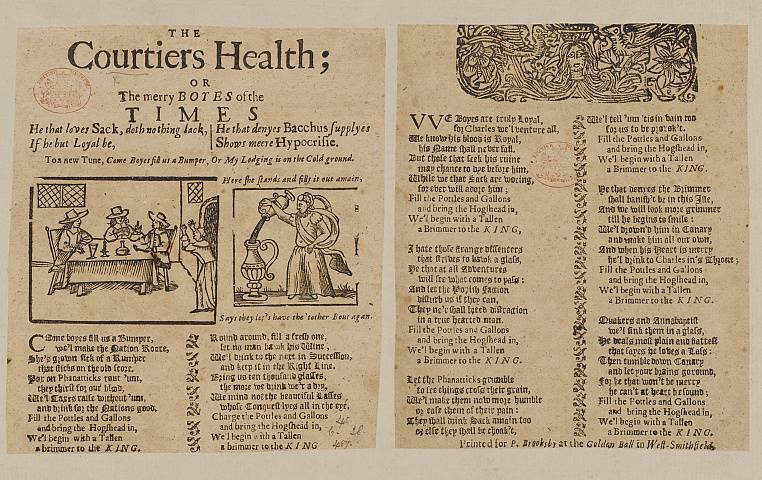 THE
Courtiers Health;
OR
The merry BOYES of the
TIMES
He that loves Sack, doth nothing lack,
If he but Loyal be,
He that denyes Bacchus supplyes
Shows meere Hypocrisie.
To a new Tune, Come Boyes fill us a Bumper, Or My Lodging is on the Cold ground.
Here she stands and fills it out amain,
Says they let's have the 'tother Bout agan.
COme boyes fill us a Bumper,
we'l make the Nation Roare,
She's grown sick of a Rumper
that sticks on the old score.
Pox on Phanaticks rout 'um,
they thirst for our blood,
We'l Taxes raise without 'um,
and drink for the Nations good.
Fill the Pottles and Gallons
and bring the Hogshead in,
We'l begin with a Tallen
a brimmer to the KING
Round around, fill a fresh one,
let no man bawk his Wine,
We'l drink to the next in Succession,
and keep it in the Right Line.
Bring us ten thousand glasses,
the more we drink we'r a dry,
We mind not the beautiful Lasses
whose Conquest lyes all in the eye.
Charge the Pottles and Gallons
and bring the Hogshead in,
We'l begin with a Tallen
a brimmer to the KING
VVE Boyes are truly Loyal,
for Charles we'l venture all,
We know his blood is Royal,
his Name shall never fall.
But those that seek his ruine
may chance to dye before him,
While we that Sack are wooing,
for ever will adore him;
Fill the Pottles and Gallons
and bring the Hogshead in,
We'l begin with a Tallen
a Brimmer to the KING,
I hate those strange dissenters
that strives to bawk a glass,
He that at all Adventures
will see what comes to pass:
And let the Popish Nation
disturb us if they can,
They ne'r shall breed distraction
in a true hearted man.
Fill the Pottles and Gallons
and bring the Hogshead in,
We'l begin with a Tallen
a Brimmer to the KING.
Let the Phanaticks grumble
to see things cross their grain,
We'l make them now more humble
or ease them of their pain:
They shall drink Sack amain too
or else they shall be choak't,
We'l tell 'um 'tis in vain too
for us to be provok't.
Fill the Pottles and Gallons
and bring the Hogshead in,
We'l begin with a Tallen
a Brimmer to the KING.
He that denyes the Brimmer
shall banish't be in this Isle,
And we will look more grimmer
till he begins to smile:
We'l drown'd him in Canary
and make him all our own,
And when his Heart is merry
he'l drink to Charles in's Throne;
Fill the Pottles and Gallons
and bring the Hogshead in,
We'l begin with a Tallen
a brimmer to the KING.
Quakers and Annabaptist
we'l sink them in a glass,
He deals most plain and flattest
that sayes he loves a Lass:
Then tumble down Canary
and let our brains go round,
For he that won't be merry
he can't at heart be sound;
Fill the Pottles and Gallons
and bring the Hogshead in,
We'l begin with a Tallen
a Brimmer to the KING.
Printed for P. Brooksby at the Golden Ball in West-Smithfield.